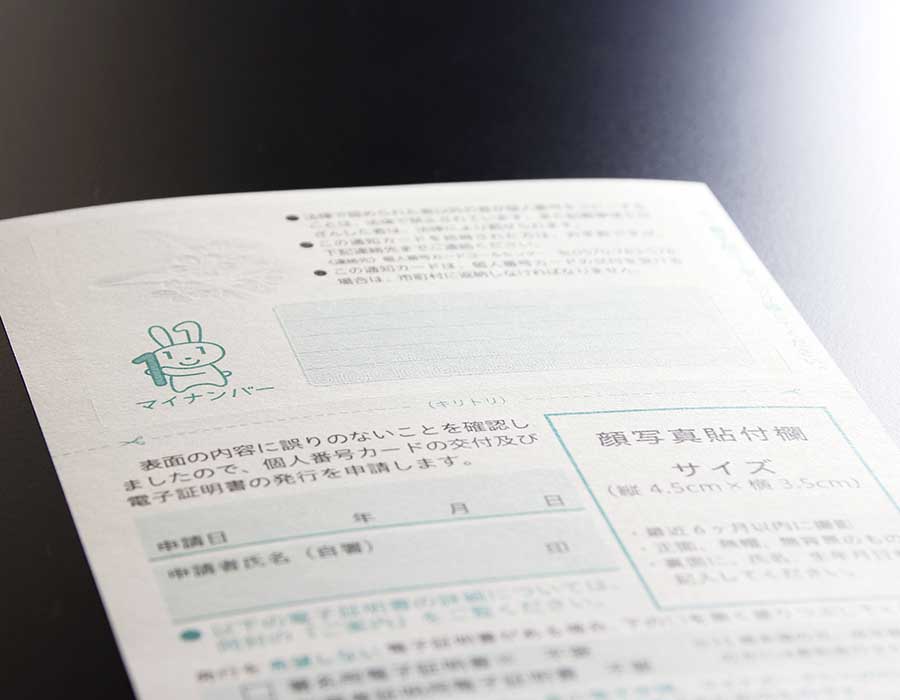 ●法律で認められた者以外の者が個人番号を
ことは、法律で禁止されています。また
ざんした者は、法律により罰せられます。
●この通知カードを拾得された方は、お手数ですが、
下記連絡先までご連絡ください。
〈連絡先〉個人番号カードコールセンター ℡0570-783-578
●この通知カードは、個人番号カードの交付を受ける
場合は、市町村に返納しなければなりません。
1
マイナンバー
(キリトリ)
表面の内容に誤りのないことを確認し
ましたので、個人番号カードの交付及び
電子証明書の発行を申請します。
申請日 年 月 日
申請者氏名(自署) 印
顔写真貼付欄
サイズ
(縦4.5cm×横3.5cm)
・最近6ヶ月以内に撮影
・正面、無帽、無背景のもの
・裏面に、氏名、生年月日を
記入してください。
●以下の電子証明書の詳細については、
同封の「ご案内」をご覧ください。
発行を希望しない電子証明書がある場合、下の□を黒く塗りつぶして
□署名用電子証明書 不要